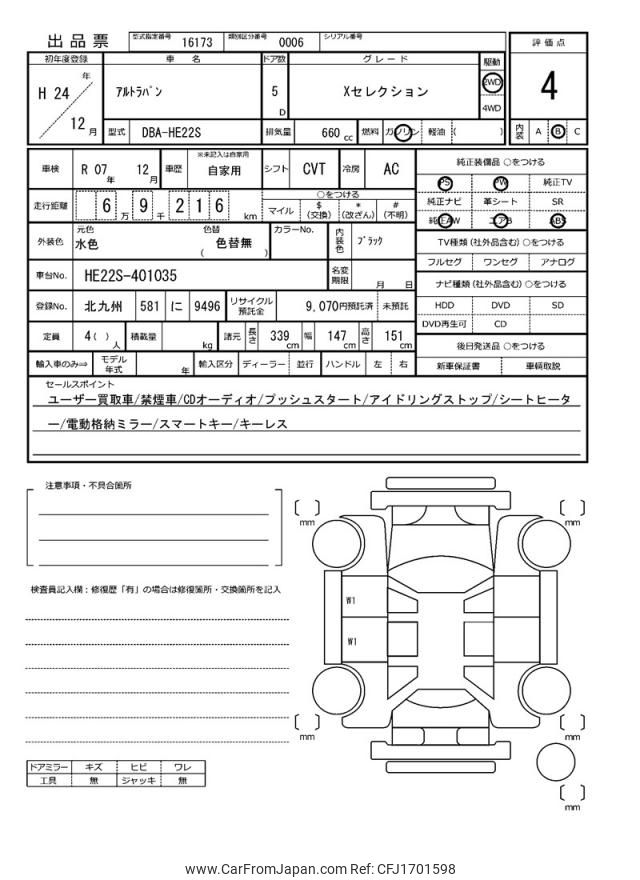 出品票 型式指定番号 16173 類別区分番号 0006 シリアル番号
評価点
4
内装 A B C
初年度登録 車名 ドア数 グレード 駆動
H 24 年 12 月 アルトラパン 5 D Xセレクション 2WD 4WD
型式 DBA-HE22S 排気量 660 cc 燃料 ガソリン 軽油 ( )
車検 R 07 年 12 月 車歴 ※未記入は自家用 自家用 シフト CVT 冷房 AC
走行距離 6 万 9 千 2 1 6 km
○をつける
マイル $ (交換) * (改ざん) # (不明)
外装色 元色 水色 色替 色替無 ( ) カラーNo. 内装色 ブラック
車台No. HE22S-401035 名変期限 月 日
登録No. 北九州 581 に 9496 リサイクル預託金 9,070円預託済 未預託
定員 4( ) 人 積載量 kg 諸元 長さ 339 cm 幅 147 cm 高さ 151 cm
輸入車のみ⇒ モデル年式 年 輸入区分 ディーラー 並行 ハンドル 左 右
純正装備品 ○をつける
PS PW 純正TV
純正ナビ 革シート SR
純正AW エアB ABS
TV種類 (社外品含む) ○をつける
フルセグ ワンセグ アナログ
ナビ種類 (社外品含む) ○をつける
HDD DVD SD
DVD再生可 CD
後日発送品 ○をつける
新車保証書 車輌取説
セールスポイント
ユーザー買取車/禁煙車/CDオーディオ/プッシュスタート/アイドリングストップ/シートヒータ
ー/電動格納ミラー/スマートキー/キーレス
注意事項・不具合箇所
検査員記入欄：修復歴「有」の場合は修復箇所・交換箇所を記入
ドアミラー キズ ヒビ ワレ
工具 無 ジャッキ 無
[ ] mm
[ ] mm
W1
W1
[ ] mm
[ ] mm
[ ] mm
www.CarFromJapan.com Ref: CFJ1701598